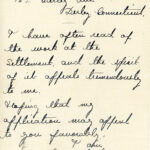 Derby Connecticut
I have often read of
the work at the
Settlement, and the spirit
of it appeals tremendously
to me.
Hoping that my
application may appeal
to you favorably,
I am,